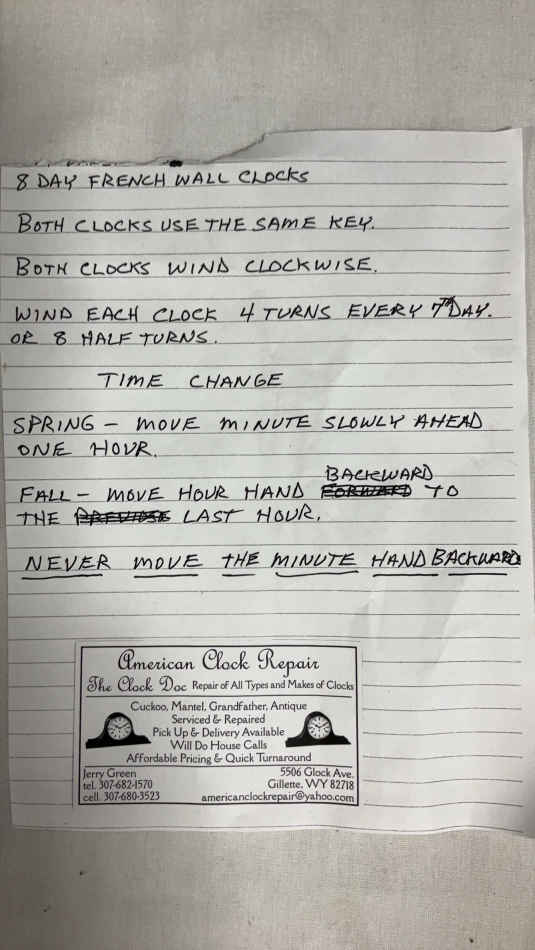 8 DAY FRENCH WALL CLOCKS
BOTH CLOCKS USE THE SAME KEY.
BOTH CLOCKS WIND CLOCKWISE.
WIND EACH CLOCK 4 TURNS EVERY 7TH DAY.
OR 8 HALF TURNS.
TIME CHANGE
SPRING - MOVE MINUTE SLOWLY AHEAD
ONE HOUR.
BACKWARD
FALL - MOVE HOUR HAND FORWARD TO
THE LAST HOUR.
NEVER MOVE THE MINUTE HAND BACKWARD
American Clock Repair
The Clock Doc Repair of All Types and Makes of Clocks
Cuckoo, Mantel, Grandfather, Antique
Serviced & Repaired
Pick Up & Delivery Available
Will Do House Calls
Affordable Pricing & Quick Turnaround
Jerry Green 5506 Glock Ave.
tel. 307-682-1570 Gillette, WY 82718
cell. 307-680-3523 americanclockrepair@yahoo.com